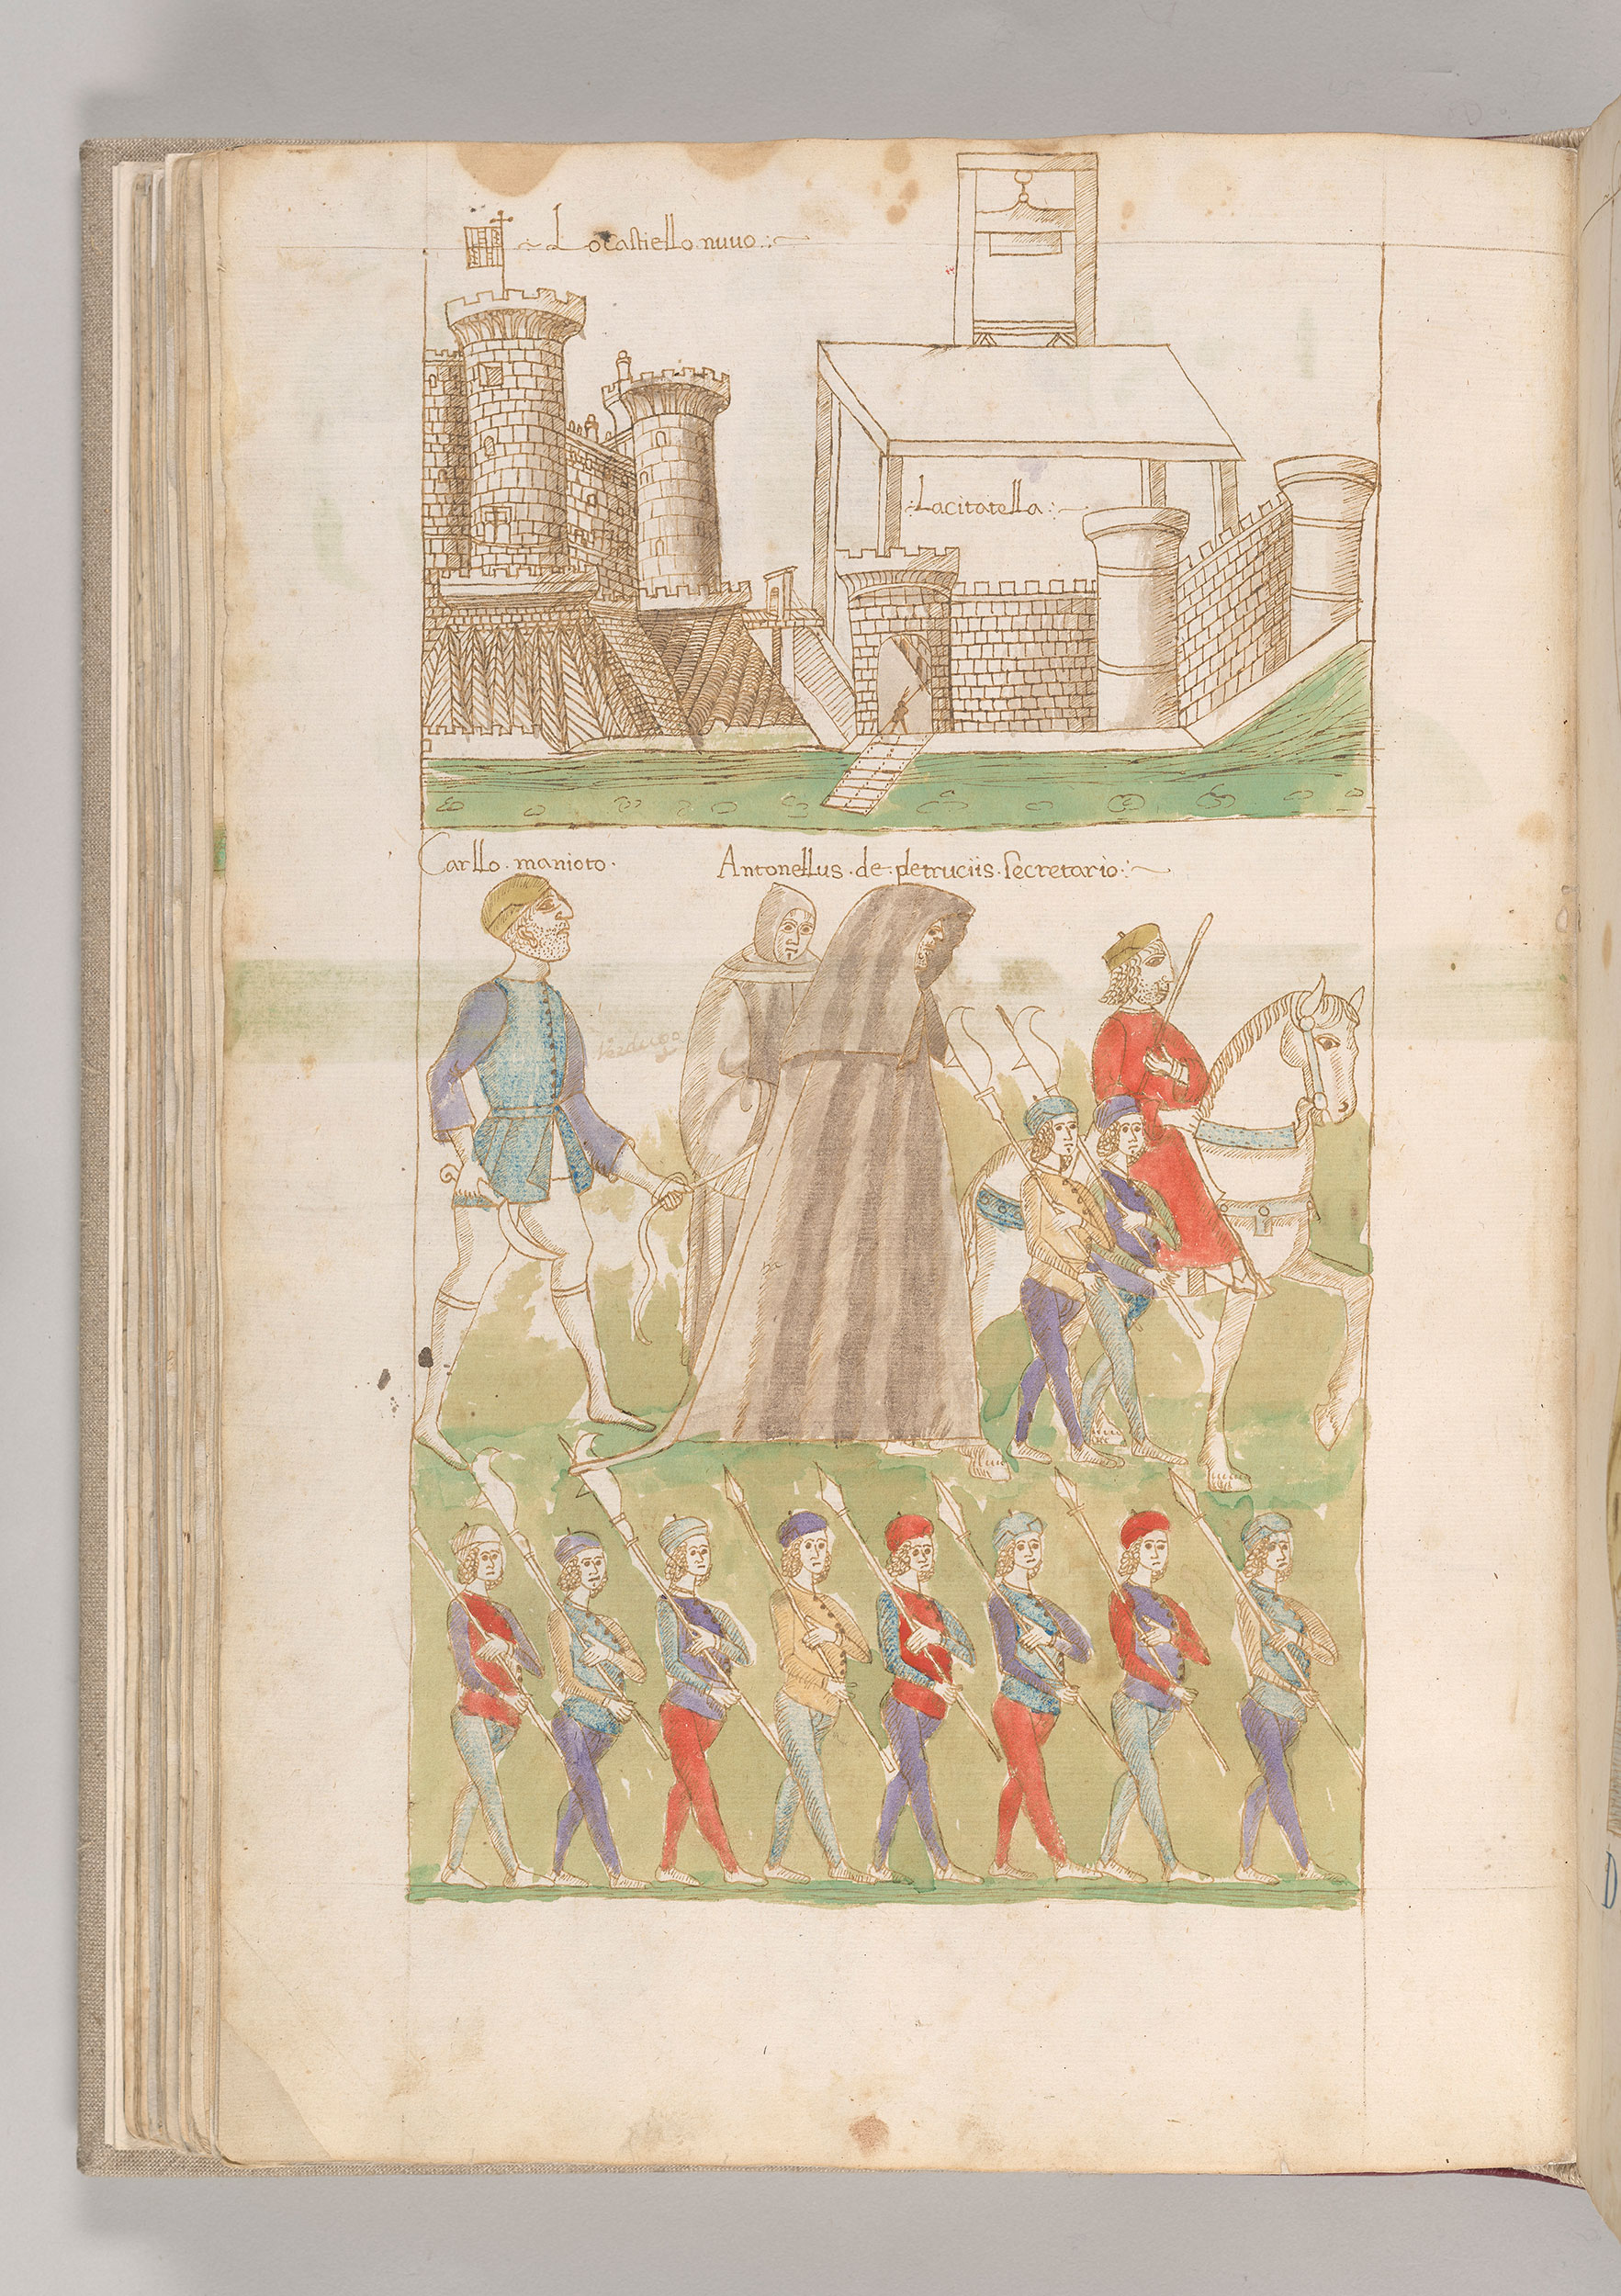 Lo castiello nuuo
La citatella
Carllo · manioto ·
Antonellus · de · petruciis · secretario
verdugo